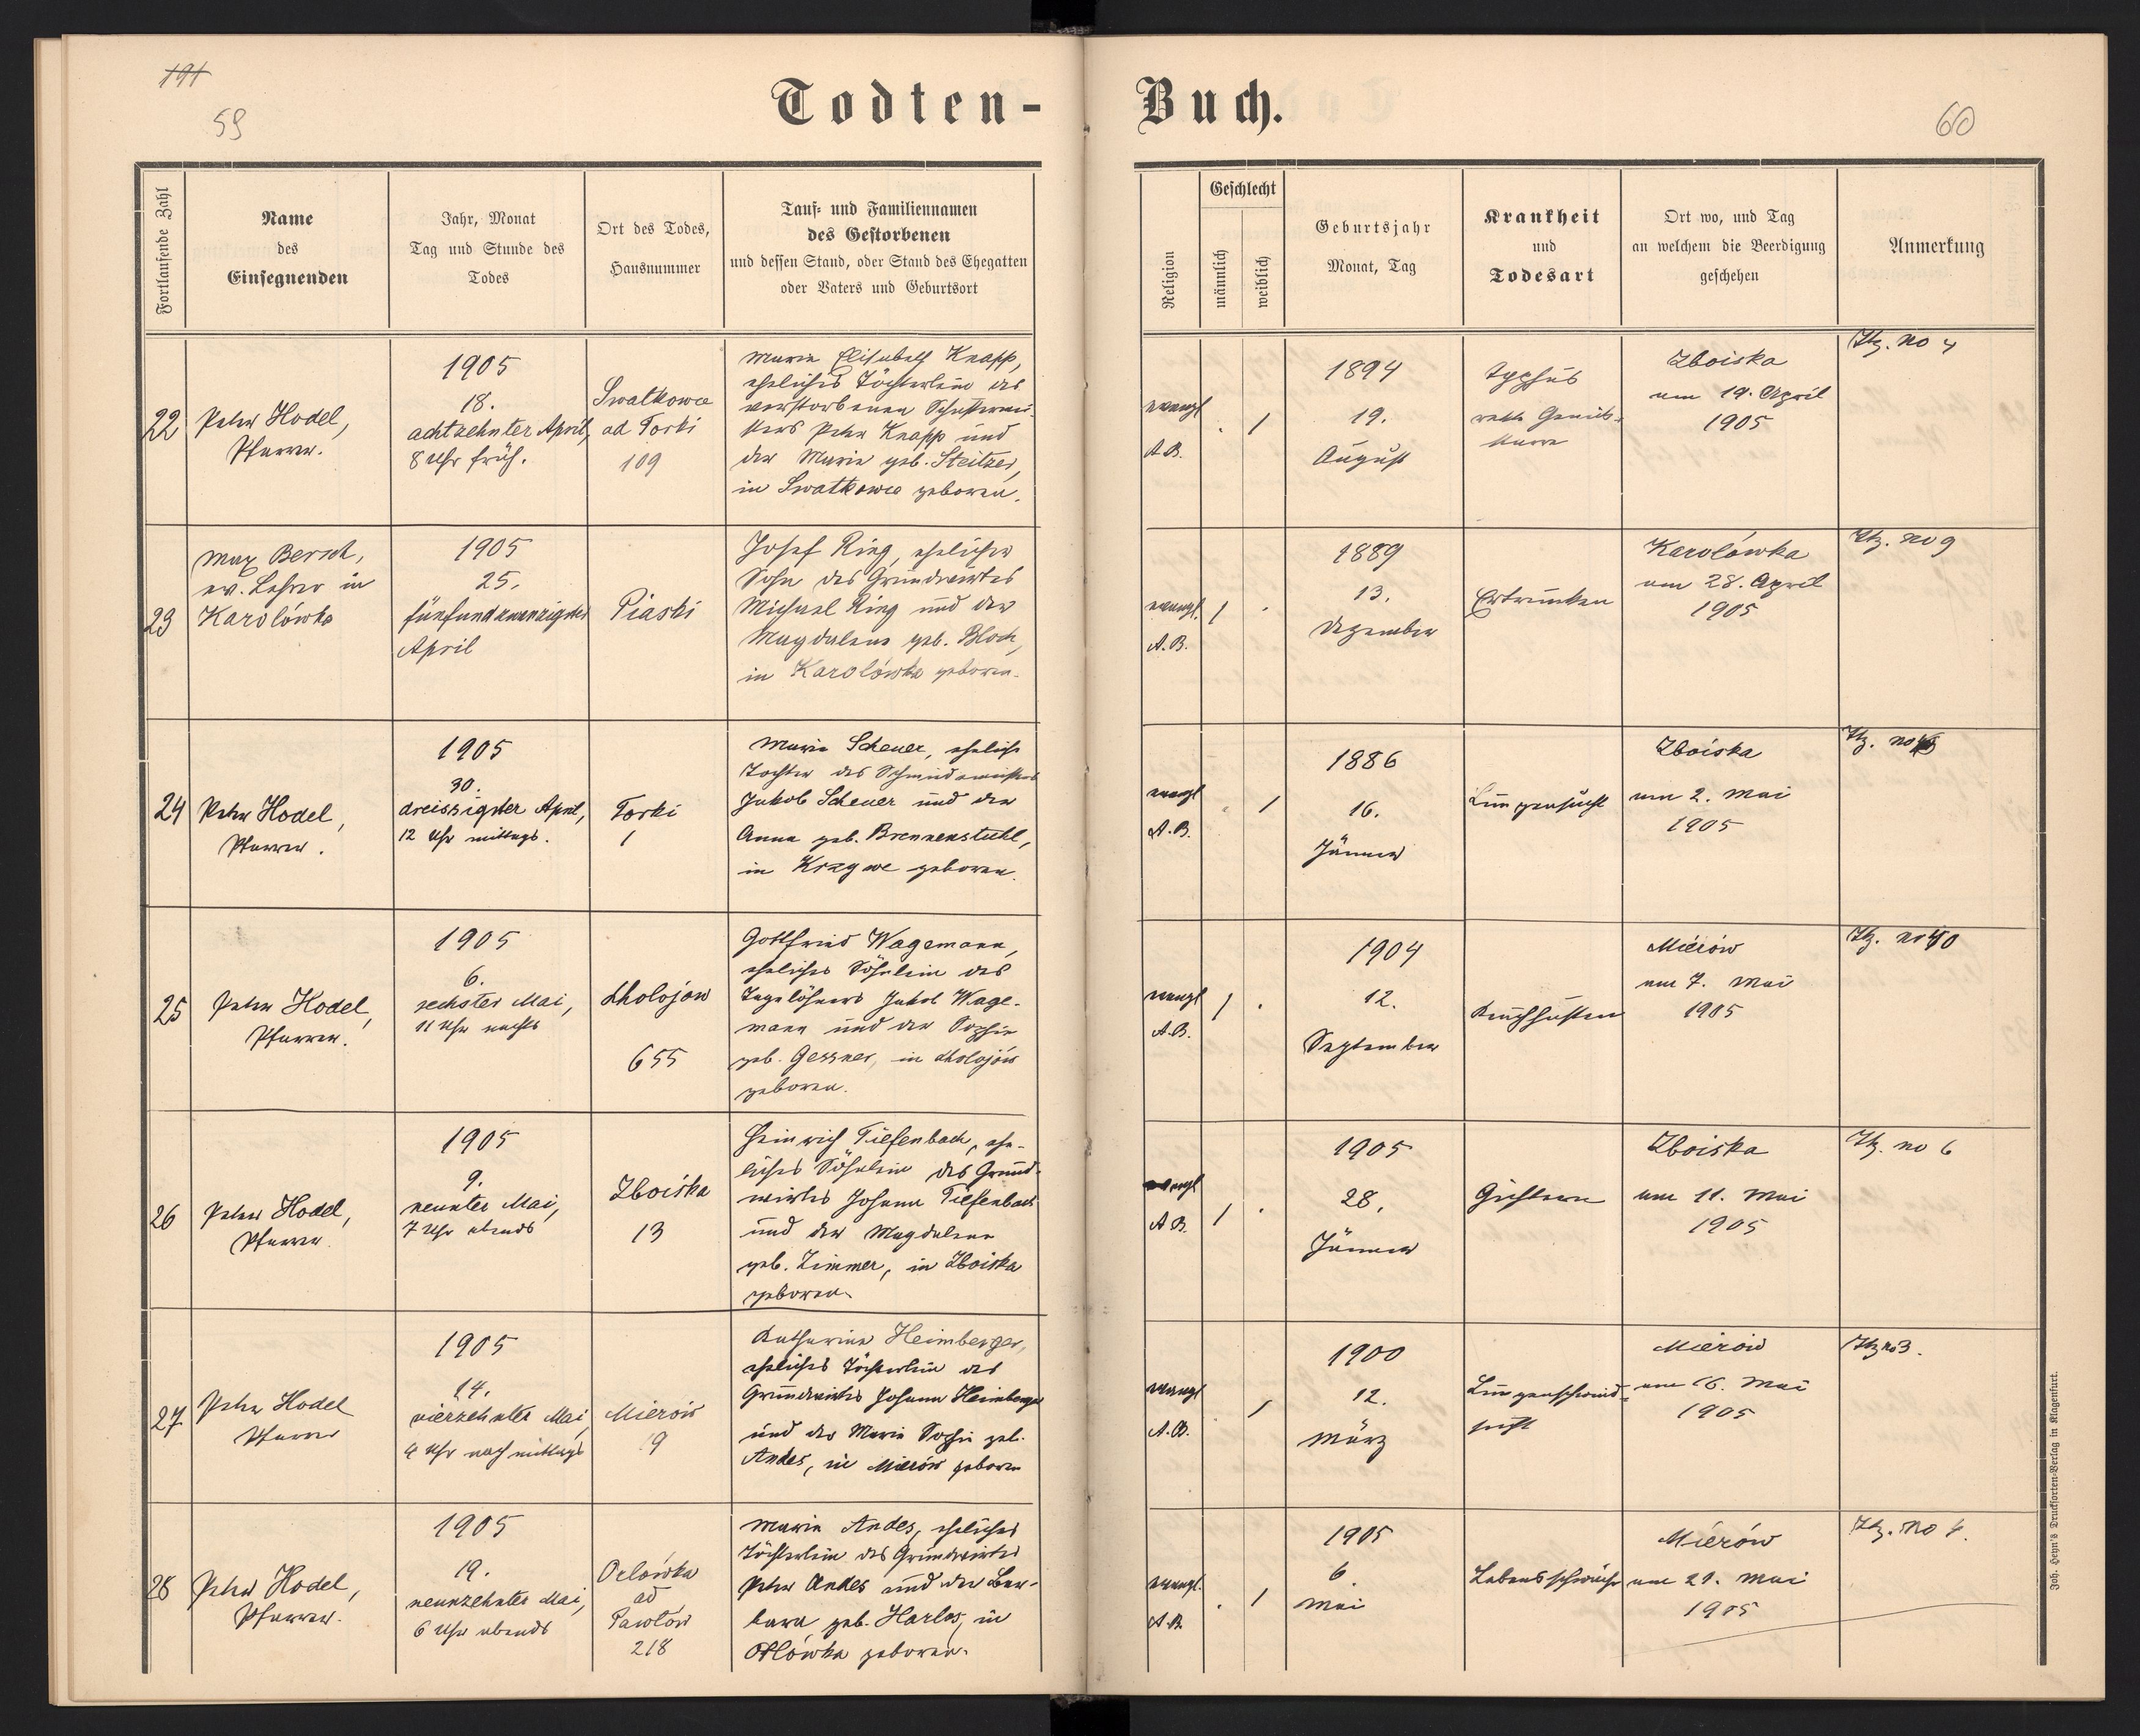 191
59
Todten-
Buch.
60
Fortlaufende Zahl
Name
des
Einsegnenden
Jahr, Monat
Tag und Stunde des
Todes
Ort des Todes,
Hausnummer
Tauf- und Familiennamen
des Gestorbenen
und dessen Stand, oder Stand des Ehegatten
oder Vaters und Geburtsort
Religion
Geschlecht
männlich
weiblich
Geburtsjahr
Monat, Tag
Krankheit
und
Todesart
Ort wo, und Tag
an welchem die Beerdigung
geschehen
Anmerkung
22
Peter Hodel,
Pfarrer.
1905
18.
achtzehnter April,
8 Uhr früh.
Swatkowce
ad Torki
109
Maria Elisabeth Knapp,
eheliches Töchterlein des
verstorbenen Schusterme-
sters Peter Knapp und
der Maria geb. Steitzer,
in Swatkowce geboren.
evangl
A.B.
. /
1894
19.
August
Typhus
Zboiska
am 19. April
1905
Itz. No 4
23
Max Bersch,
ev. Lehrer in
Karolówka
1905
25.
fünfundzwanzigster
April
Piaski
Josef Ring, ehelicher
Sohn des Grundwirtes
Michael Ring und der
Magdalena geb. Bloch,
in Karolówka geboren.
evangl.
A.B.
/ .
1889
13.
Dezember
Ertrunken
Karolówka
am 28. April
1905
Itz. No 9
24
Peter Hodel,
Pfarrer.
1905
30.
dreissigster April,
12 Uhr mittags.
Torki
1
Maria Scheuer, eheliche
Tochter des Schmiedemeisters
Jakob Scheuer und der
Anna geb. Brennenstuhl,
in Krzywe geboren.
evangl
A.B.
. /
1886
16.
Jänner
Lungensucht
Zboiska
am 2. Mai
1905
Itz. No
25
Peter Hodel,
Pfarrer.
1905
6.
sechster Mai,
11 Uhr nachts
Cholojów
655
Gottfried Wagemann,
eheliches Söhnlein des
Tagelöhners Jakob Wage-
mann und der Sophie
geb. Gessner, in Cholojów
geboren.
evangl
A.B.
/ .
1904
12.
September
Keuchhusten
Mierów
am 7. Mai
1905
Itz. No 40
26
Peter Hodel,
Pfarrer.
1905
9.
neunter Mai,
7 Uhr abends
Zboiska
13
Heinrich Tiefenbach, ehe-
liches Söhnlein des Grund-
wirtes Johann Tiefenbach
und der Magdalena
geb. Zimmer, in Zboiska
geboren.
evangl
A.B.
/ .
1905
28.
Jänner
Zboiska
am 11. Mai
1905
Itz. No 6
27
Peter Hodel
Pfarrer
1905
14.
vierzehnter Mai,
4 Uhr nachmittags
Mierów
9
Katharina Heimberger,
eheliches Töchterlein des
Grundwirtes Johann Heimberger
und der Maria Sophie geb.
Andes, in Mierów geboren
evangl
A.B.
/
1900
12.
März
Lungenschwind-
sucht
Mierów
am 16. Mai
1905
Itz No 3.
28
Peter Hodel,
Pfarrer.
1905
19.
neunzehnter Mai,
6 Uhr abends
Orlówka
ad
Pawlów
218
Maria Andes, eheliches
Töchterlein des Grundwirtes
Peter Andes und der Bar-
bara geb. Harlos, in
Orlówka geboren.
evangl.
A.B.
. /
1905
6.
Mai
Lebensschwäche
Mierów
am 21. Mai
1905
Itz. No 4.
Joh. Heyn's Drucksorten-Verlag in Klagenfurt.